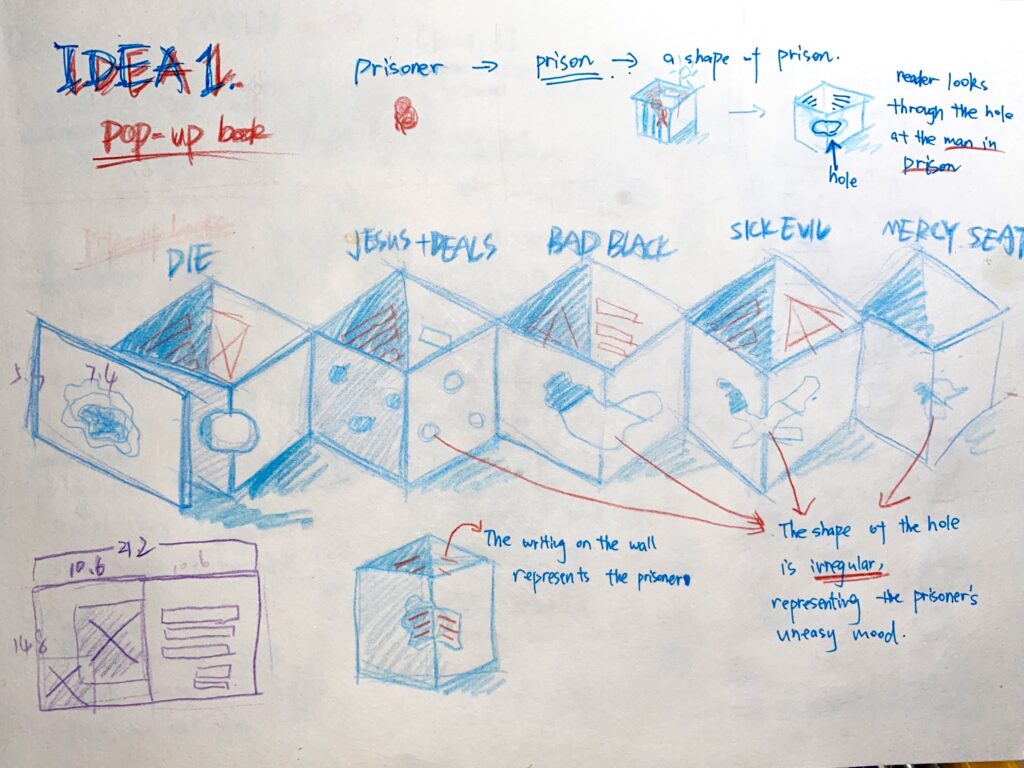 IDEA 1.
POP-up book
prisoner → prison → a shape of prison.
reader looks
through the hole
at the man in
prison
hole
DIE
JESUS + DEALS
BAD BLACK
SICK EVIL
MERCY SEAT
7.4
The writing on the wall
represents the prisoner.
The shape of the hole
is irregular,
representing the prisoner's
uneasy mood.
21.2
10.6 10.6
14.8